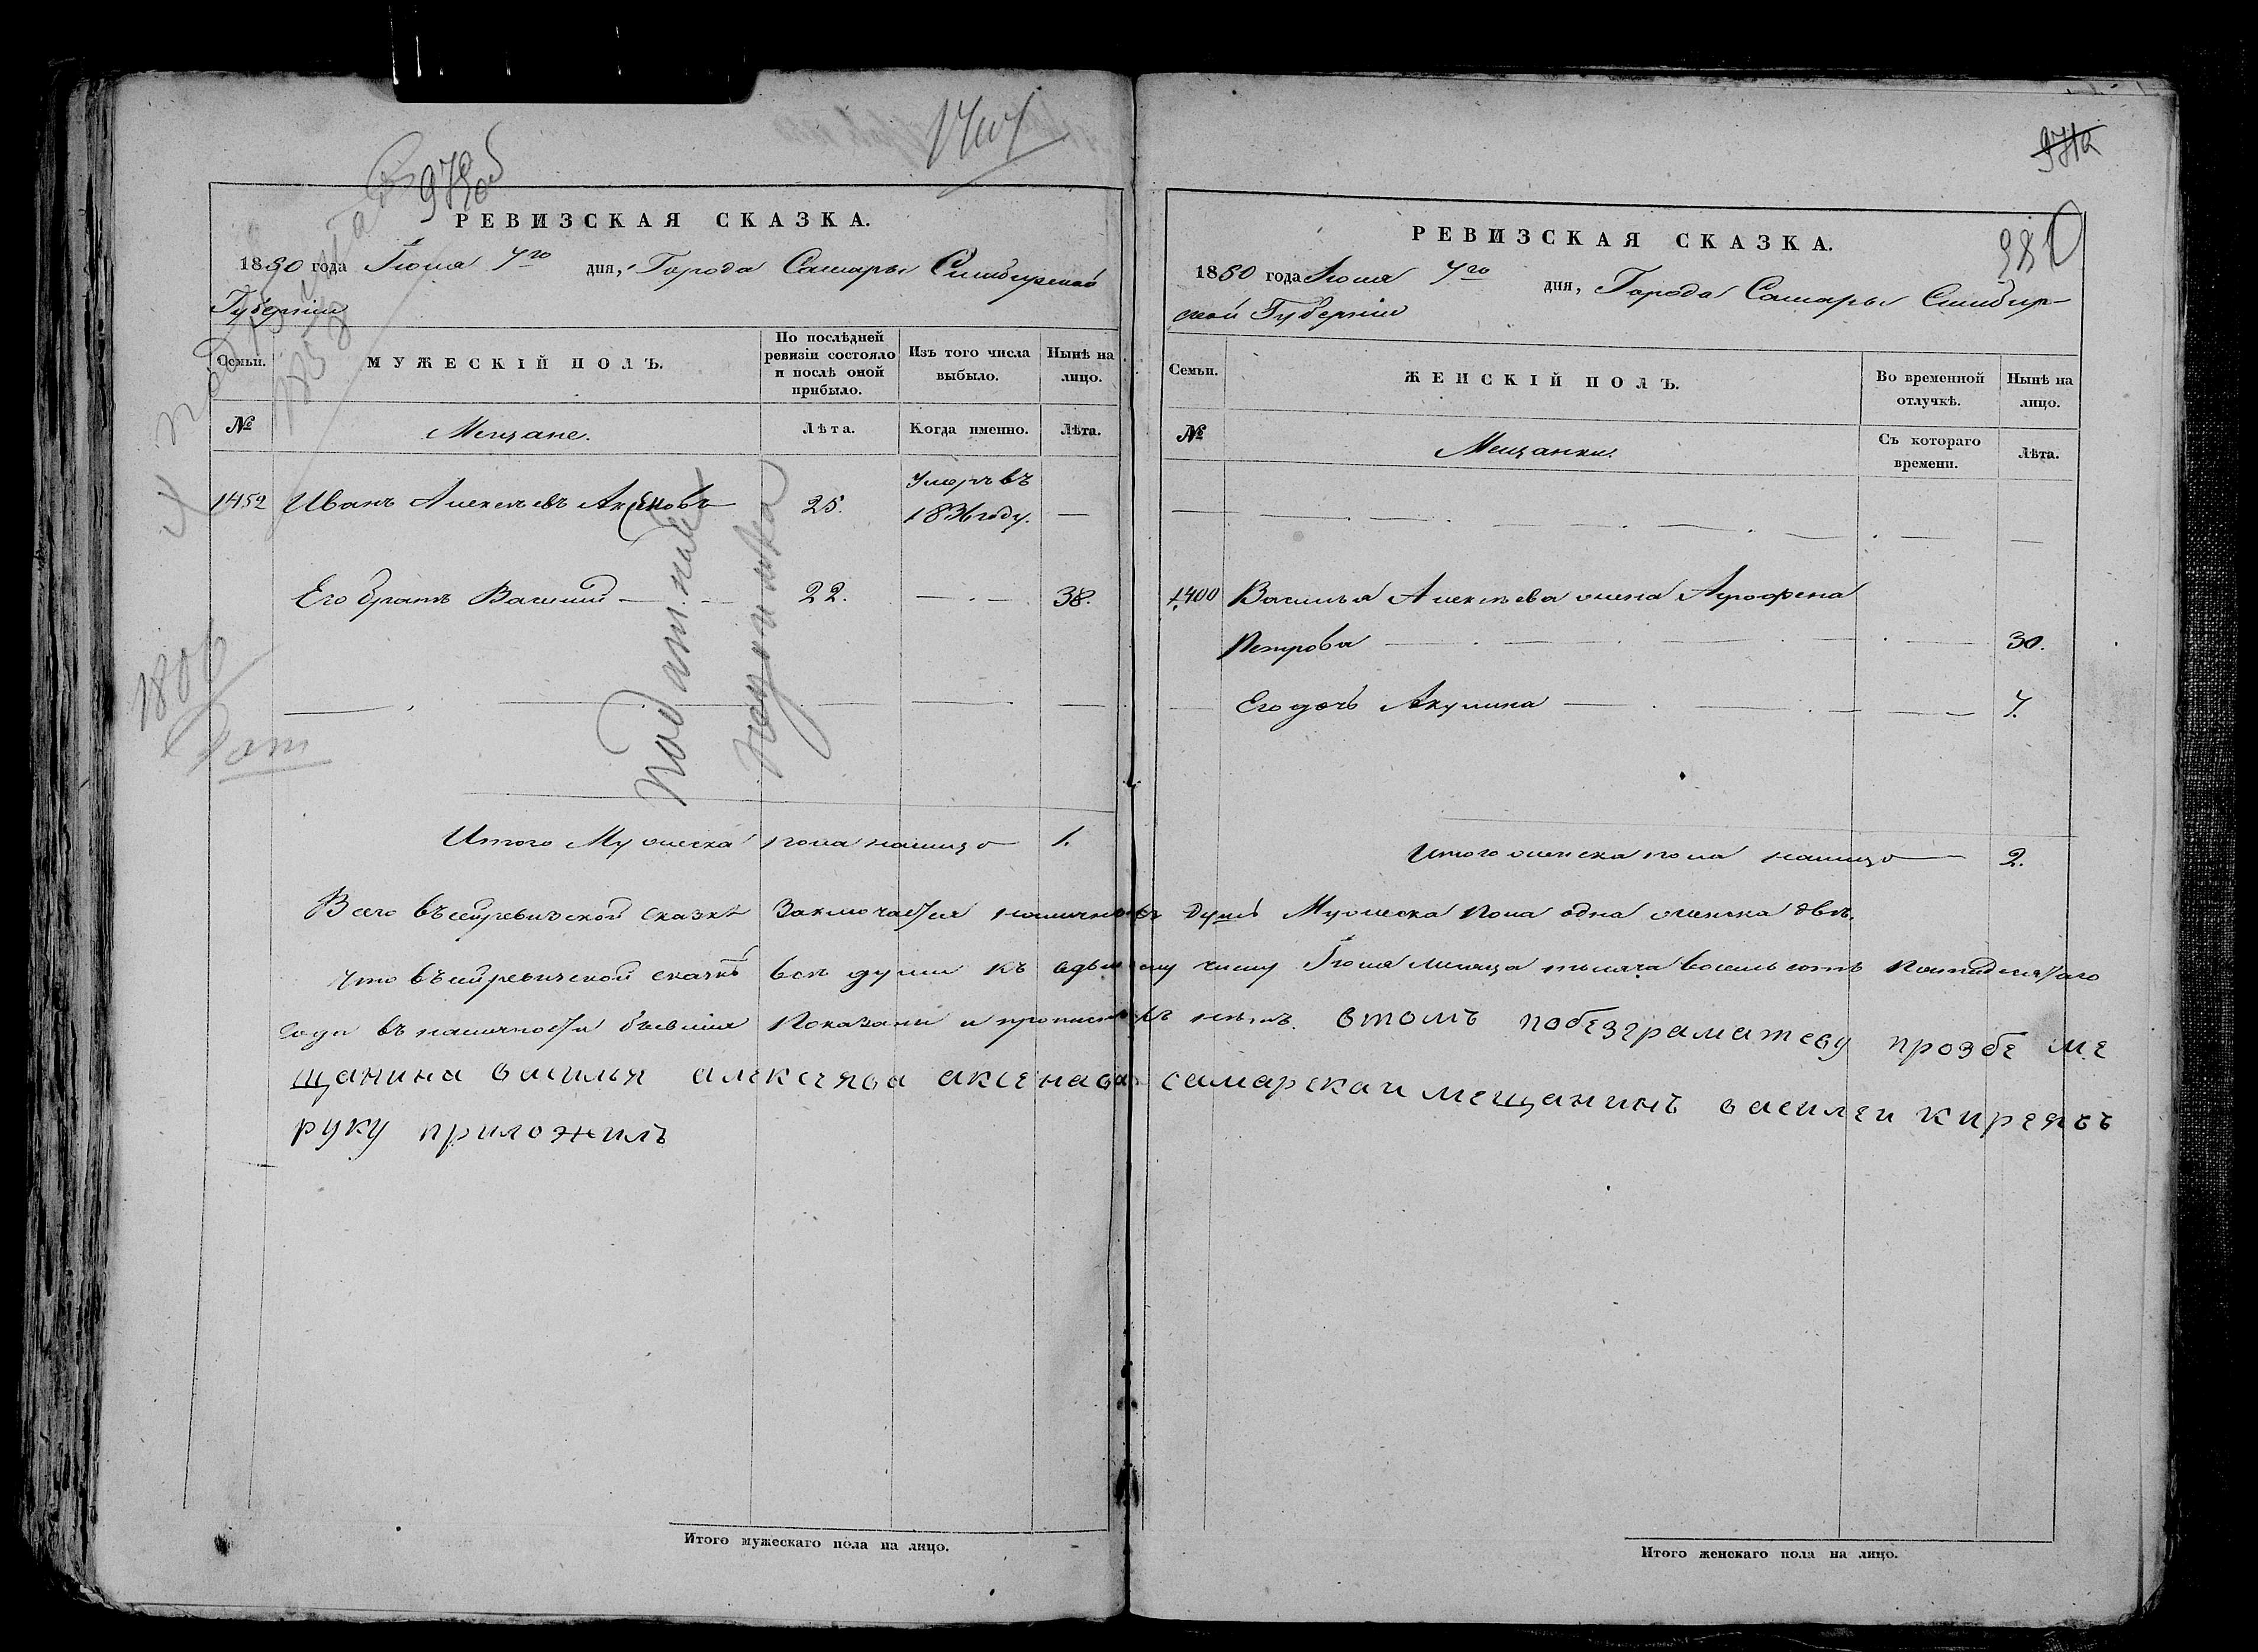 1707
979об
РЕВИЗСКАЯ СКАЗКА.
1850 года Іюня 7го дня, Города Самары Симбирской
Губерніи
Семьи.
МУЖЕСКІЙ ПОЛЪ.
По послѣдней ревизіи состояло и послѣ оной прибыло.
Изъ того числа выбыло.
Нынѣ на лицо.
№
Мещане.
Лѣта.
Когда именно.
Лѣта.
1452 Иванъ Алексѣевъ Аксеновъ 25. Умеръ въ
1836 году. —
Его братъ Василий — 22. — 38.
Итого Мужеска пола налицо 1.
980
РЕВИЗСКАЯ СКАЗКА.
1850 года Іюня 7го дня, Города Самары Симбир-
ской Губерніи
Семьи.
ЖЕНСКІЙ ПОЛЪ.
Во временной отлучкѣ.
Нынѣ на лицо.
№
Мещанки.
Съ котораго времени.
Лѣта.
1400 Василья Алексѣева жена Агрофена
Петрова — 30.
Его дочь Акулина — 7.
Итого женска пола налицо — 2.
Всего въ сей ревизской сказкѣ Заключается наличныхъ душъ Мужеска пола одна женска двѣ.
Что въ сей ревизской сказкѣ всѣ души къ седьмому числу Іюня месяца тысяча восемь сотъ Пятидесятаго
года въ наличности бывшия Показаны и прописныхъ нѣтъ. втомъ побезграматеву прозбе ме
щанина василья алексеява аксенава самарскаи мещанинъ василеи киреявъ
руку приложилъ
Итого мужескаго пола на лицо.
Итого женскаго пола на лицо.